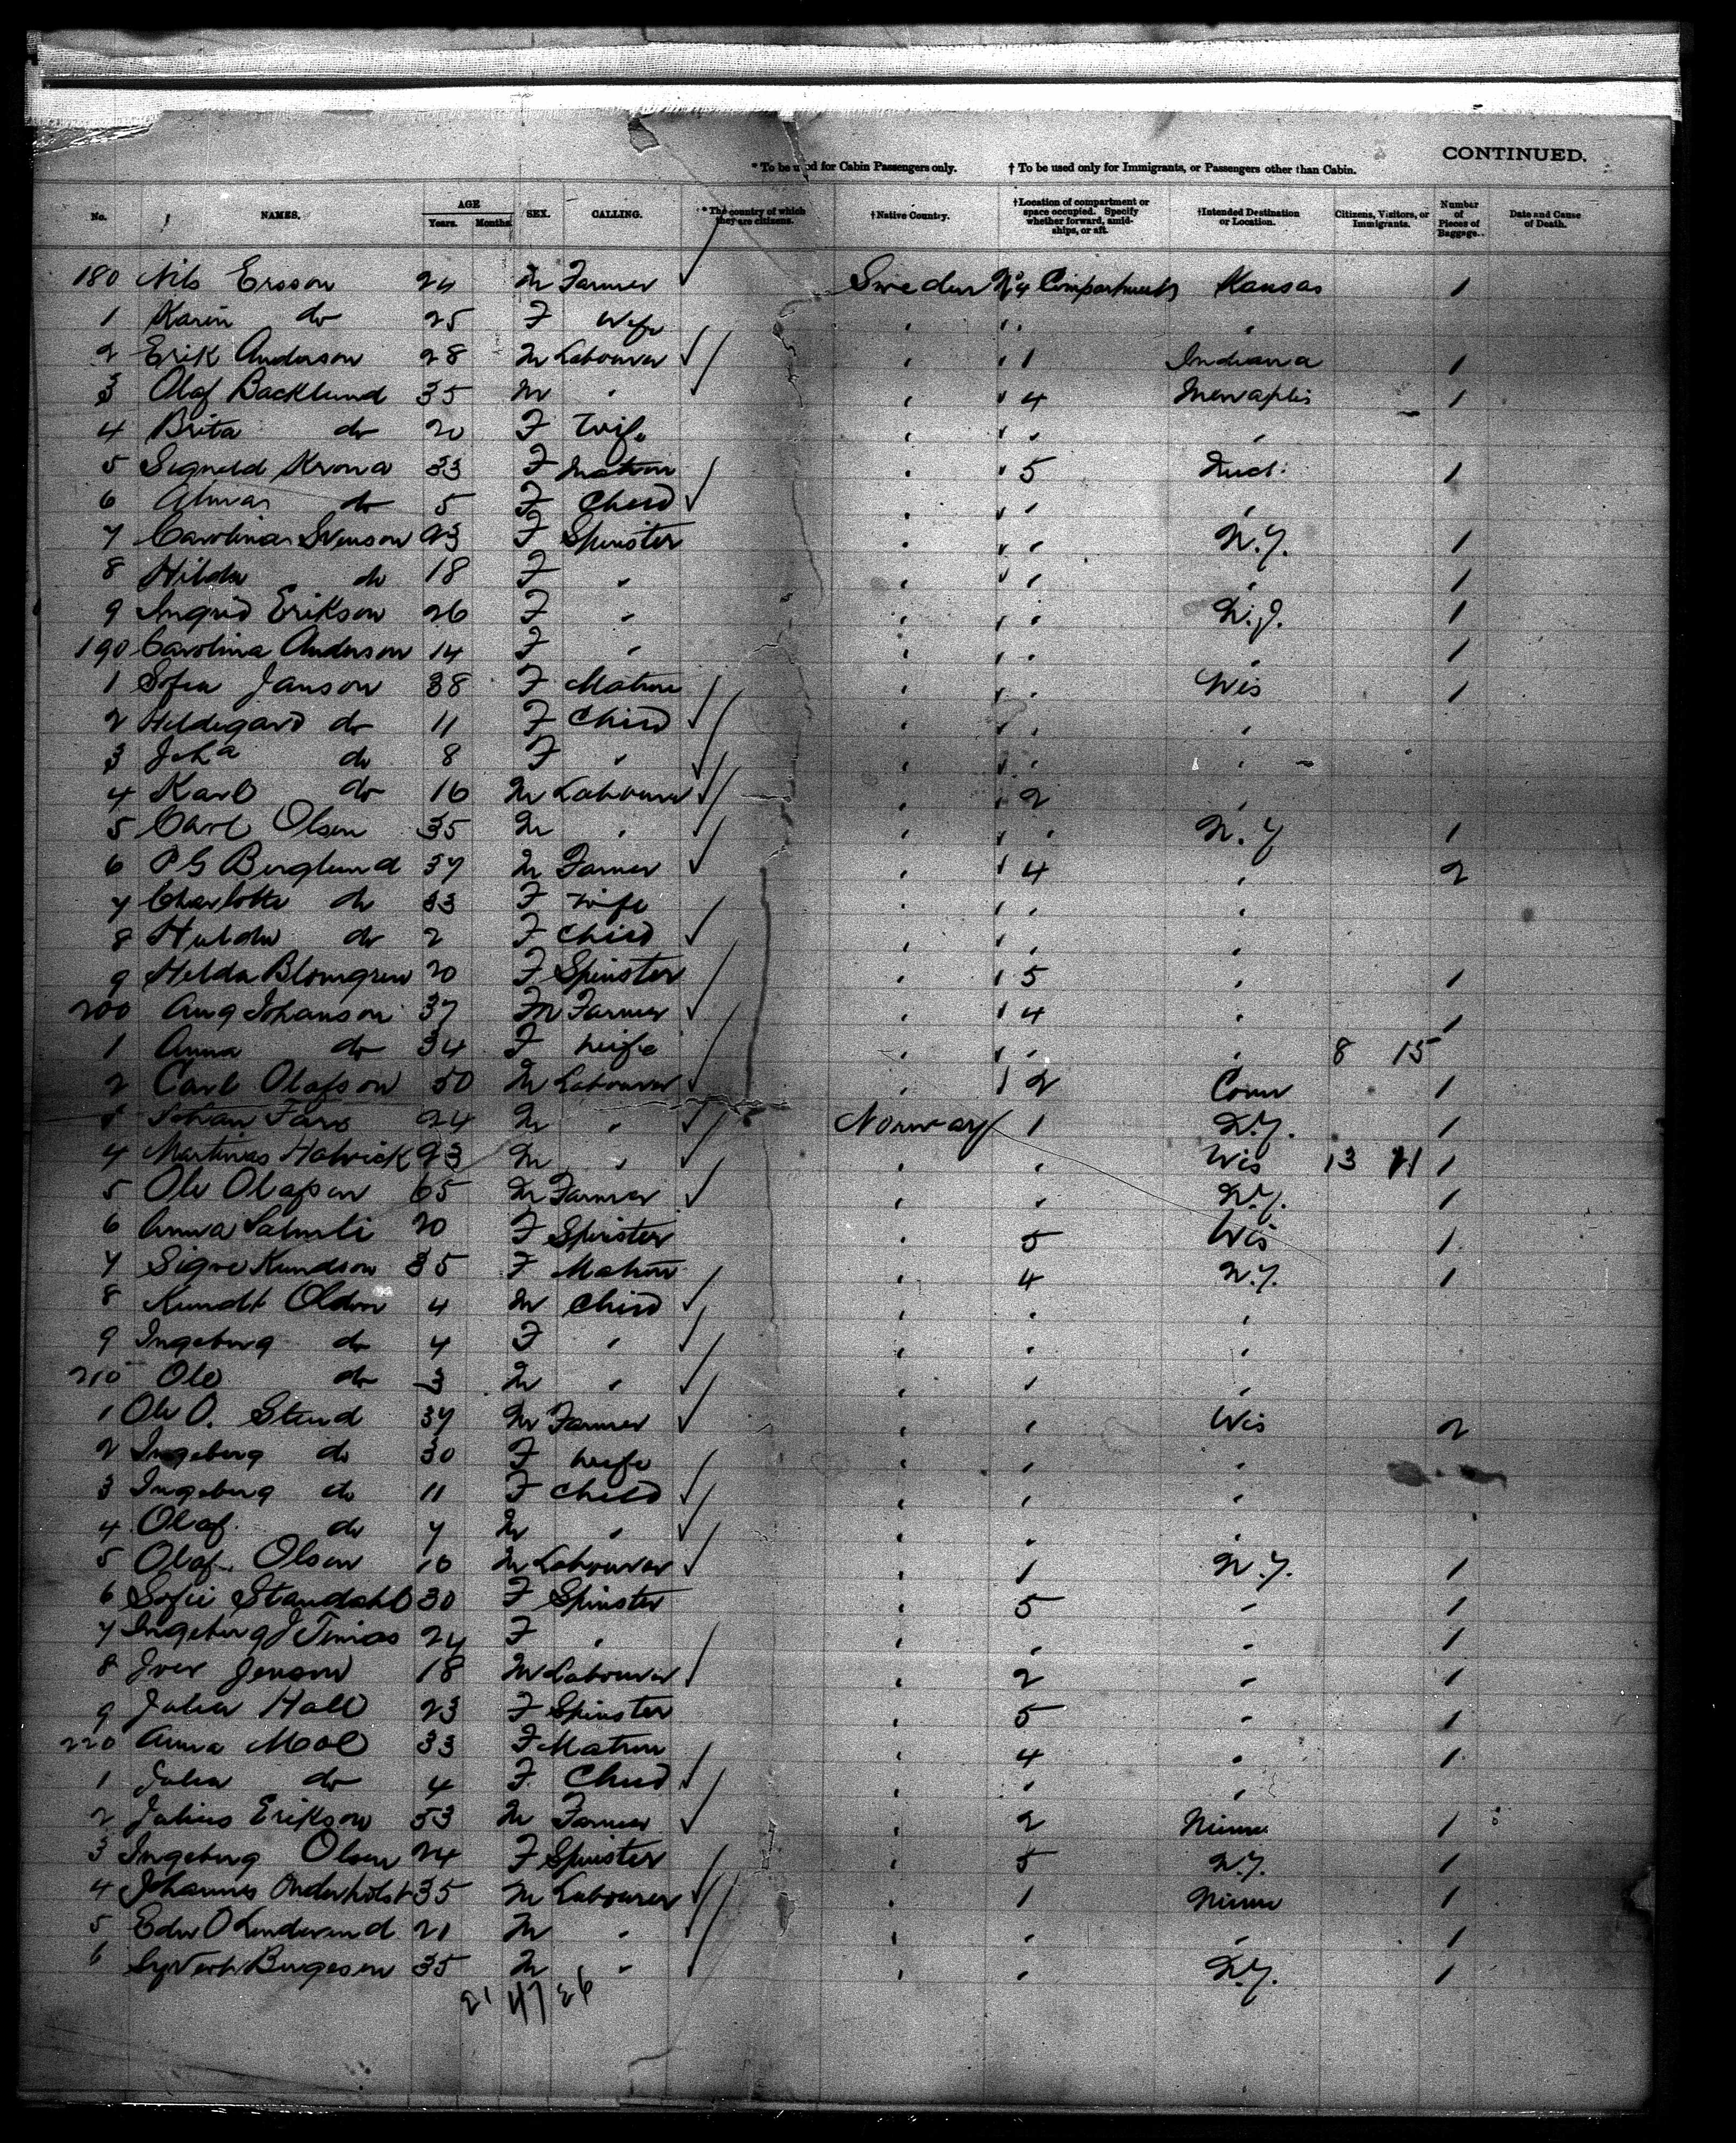 CONTINUED.
* To be used for Cabin Passengers only. † To be used only for Immigrants, or Passengers other than Cabin.
No. NAMES. AGE Years. Months. SEX. CALLING. *The country of which they are citizens. †Native Country. †Location of compartment or space occupied. Specify whether forward, amidships, or aft. †Intended Destination or Location. Citizens, Visitors, or Immigrants. Number of Pieces of Baggage. Date and Cause of Death.
180 Nils Ersson 24 M Farmer Sweden No 4 Compartment Kansas 1
1 Karin do 25 F Wife " " "
2 Erik Anderson 28 M Labourer " " 1 Indiana 1
3 Olof Backlund 35 M " " " 4 1
4 Brita do 20 F Wife " " " "
5 Krona 33 F Matron " " 5 1
6 do 5 F Child " " " "
7 Carolina Svenson 23 F Spinster " " " N.Y. 1
8 Hilda do 18 F " " " " " 1
9 Ingrid Erikson 26 F " " " " N.J. 1
190 Carolina Anderson 14 F " " " " " 1
1 Sofia Janson 38 F Matron " " " Wis 1
2 Hildegard do 11 F Child " " " "
3 do 8 F " " " " "
4 Karl do 16 M Labourer " " 2 "
5 Carl Olsen 35 M " " " " N.Y 1
6 P G Berglund 37 M Farmer " " 4 " 2
7 Charlotte do 33 F Wife " " " "
8 Hulda do 2 F Child " " " "
9 Hilda Blomgren 20 F Spinster " " 5 " 1
200 Aug Johanson 37 M Farmer " " 4 " 1
1 Anna do 34 F Wife " " " " 8 15
2 Carl Olafson 50 M Labourer " " 2 Conn 1
3 Johan 24 M " Norway 1 N.Y. 1
4 Martinas 23 M " " " Wis 13 11 1
5 Ole Olafsen 65 M Farmer " " N.Y. 1
6 Anna 20 F Spinster " 5 Wis 1
7 Signe Kundson 35 F Matron " 4 N.Y. 1
8 Kundt 4 M Child " " "
9 Ingeborg do 4 F " " " "
210 Ole do 3 M " " " "
1 Ole O. Stend 37 M Farmer " " Wis 2
2 Ingeberg do 30 F Wife " " "
3 Ingeberg do 11 F Child " " "
4 Olaf do 7 M " " " "
5 Olaf Olsen 16 M Labourer " 1 N.Y. 1
6 Sofie Standahl 30 F Spinster " 5 " 1
7 Ingeberg J 24 F " " " " 1
8 Iver Jenson 18 M Labourer " 2 " 1
9 Julia Hall 23 F Spinster " 5 " 1
220 Anna Moe 33 F Matron " 4 " 1
1 Julia do 4 F Child " " "
2 Julius Erikson 53 M Farmer " 2 Minn 1
3 Ingeberg Olsen 24 F Spinster " 5 N.Y. 1
4 Johannes Onderholst 35 M Labourer " 1 Minn 1
5 21 M " " " " 1
6 Bergesen 35 M " " " N.Y. 1
21 47 26